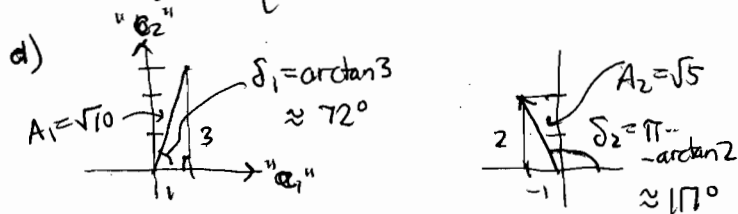 d)
"a₂"
A₁=√10
δ₁=arctan3
≈ 72°
3
1
"a₁"
A₂=√5
2
δ₂=π-
-arctan2
-1
≈ 117°